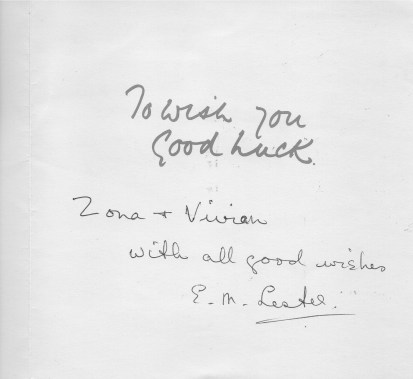 To wish you
Good Luck.
Zona + Vivian
with all good wishes
E. M. Lester.